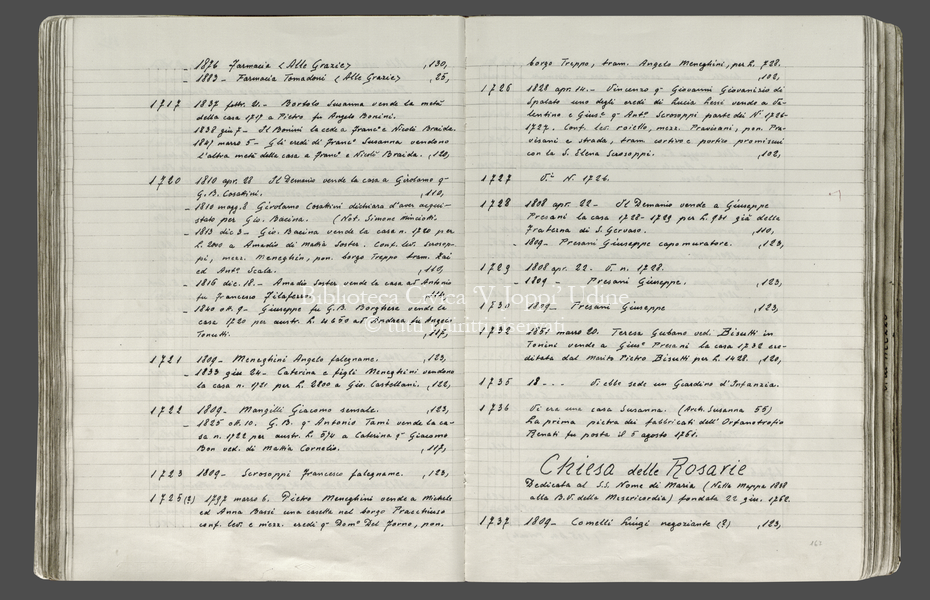 – 1876 Farmacia (Alle Grazie) ,130,
– 1883 – Farmacia Tomadoni (Alle Grazie) ,25,
1717 1837 febbr. 21 – Bortolo Susanna vende la metà
della casa 1717 a Pietro fu Angelo Bonini.
1838 giu 7 – Il Bonini la cede a Franc° e Nicolò Braida.
1847 marzo 5 – Gli eredi di Franc° Susanna vendono
l'altra metà delle case a Franc° e Nicolò Braida. ,120,
1720 1810 apr. 28 Il Demanio vende la casa a Girolamo q–
G.B. Cosattini. ,110,
– 1810 magg. 8 Girolamo Cosattini dichiara d'aver acqui-
stato per Gio. Bacina. (Not. Simone
– 1813 dic 3 – Gio. Bacina vende la casa n. 1720 per
L. 2000 a Amadio di Mattia Soster. Conf. lev. Scrosop-
pi, mezz. Meneghin, pon. borgo Treppo tram. Rai
ed Ant° Scala. ,110,
– 1816 dic. 18. – Amadio Soster vende la casa ad Antonio
fu Francesco Filaferro
– 1840 ott. 9 – Giuseppe fu G.B. Borghese vende la
casa 1720 per austr. L. a Andrea fu Angelo
Tonutti. ,117,
1721 1809 – Meneghini Angelo falegname. ,123,
– 1833 giu 24 – Caterina e figli Meneghini vendono
la casa n. 1721 per L. 2800 a Gio. Castellani. ,122,
1722 1809 – Mangilli Giacomo sensale. ,123,
– 1825 ott. 10. G.B. q– Antonio Tami vende la ca-
sa n. 1722 per austr. L. 574 a Caterina q– Giacomo
Bon ved. di Mattia Cornelio. ,117,
1723 1809 – Scrosoppi Francesco falegname. ,123,
1725(?) 1797 marzo 6. Pietro Meneghini vende a Michele
ed Anna Bassi una casetta nel borgo Pracchiuso
conf. lev. e mezz. eredi q– Dom° Del Forno, pon.
borgo Treppo, tram. Angelo Meneghini, per L. 728.
,102,
1726 1828 apr. 14. – Vincenzo q– Giovanni Giovanizio di
Spalato uno degli eredi di Lucia Lessi vende a Va-
lentino e Gius° q– Ant° Scrosoppi parte dei N. 1726-
1727. Conf. lev. roiello, mezz. Pravisani, pon. Pra-
visani e strada, tram cortivo e portico promiscui
con la S. Elena Scrosoppi. ,102,
1727 V. N. 1726.
1728 1808 apr. 22 – Il Demanio vende a Giuseppe
Presani la casa 1728-1729 per L. 931 già della
Fraterna di S. Gervaso. ,110,
– 1809 – Presani Giuseppe capomuratore. ,123,
1729 1808 apr. 22. V. n. 1728.
– 1809 Presani Giuseppe. ,123,
1809 – Presani Giuseppe ,123,
1732 1851 marzo 20. Teresa Gubano ved. Bisutti in
Tonini vende a Gius° Presani la casa 1732 ere-
ditata dal marito Pietro Bisutti per L. 1428. ,120,
1735 18 . . . Vi ebbe sede un Giardino d'Infanzia.
1736 Vi era una casa Susanna. (Arch. Susanna 55)
La prima pietra dei fabbricati dell'Orfanotrofio
Renati fu posta il 5 agosto 1761.
Chiesa delle Rosarie
Dedicata al S.S. Nome di Maria (Nella Mappa 1818
alla B.V. della Misericordia) fondata 22 giu. 1762.
1737 1809 – Comelli Luigi negoziante (?) ,123,
162
Biblioteca Civica 'V. Joppi' Udine
© tutti i diritti riservati